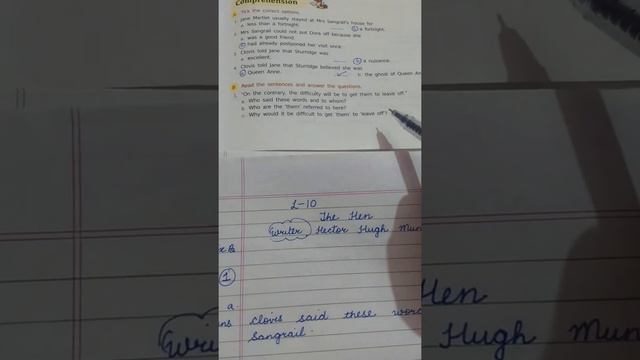 Comprehension
A Tick the correct options.
1. Jane Martlet usually stayed at Mrs Sangrail's house for
a. less than a fortnight. b. a fortnight.
2. Mrs Sangrail could not put Dora off because she
a. was a good friend.
b. had already postponed her visit once.
3. Clovis told Jane that Sturridge was
a. excellent. b. a nuisance.
4. Clovis told Jane that Sturridge believed she was
a. Queen Anne. b. the ghost of Queen An
B Read the sentences and answer the questions.
1. "On the contrary, the difficulty will be to get them to leave off."
a. Who said these words and to whom?
b. Who are the 'them' referred to here?
c. Why would it be difficult to get 'them' to 'leave off'?
L-10
The Hen
Writer Hector Hugh Mun
x.B
1
a.
ns Clovis said these wor
Sangrail.
Hen
Writer
Hugh Mun